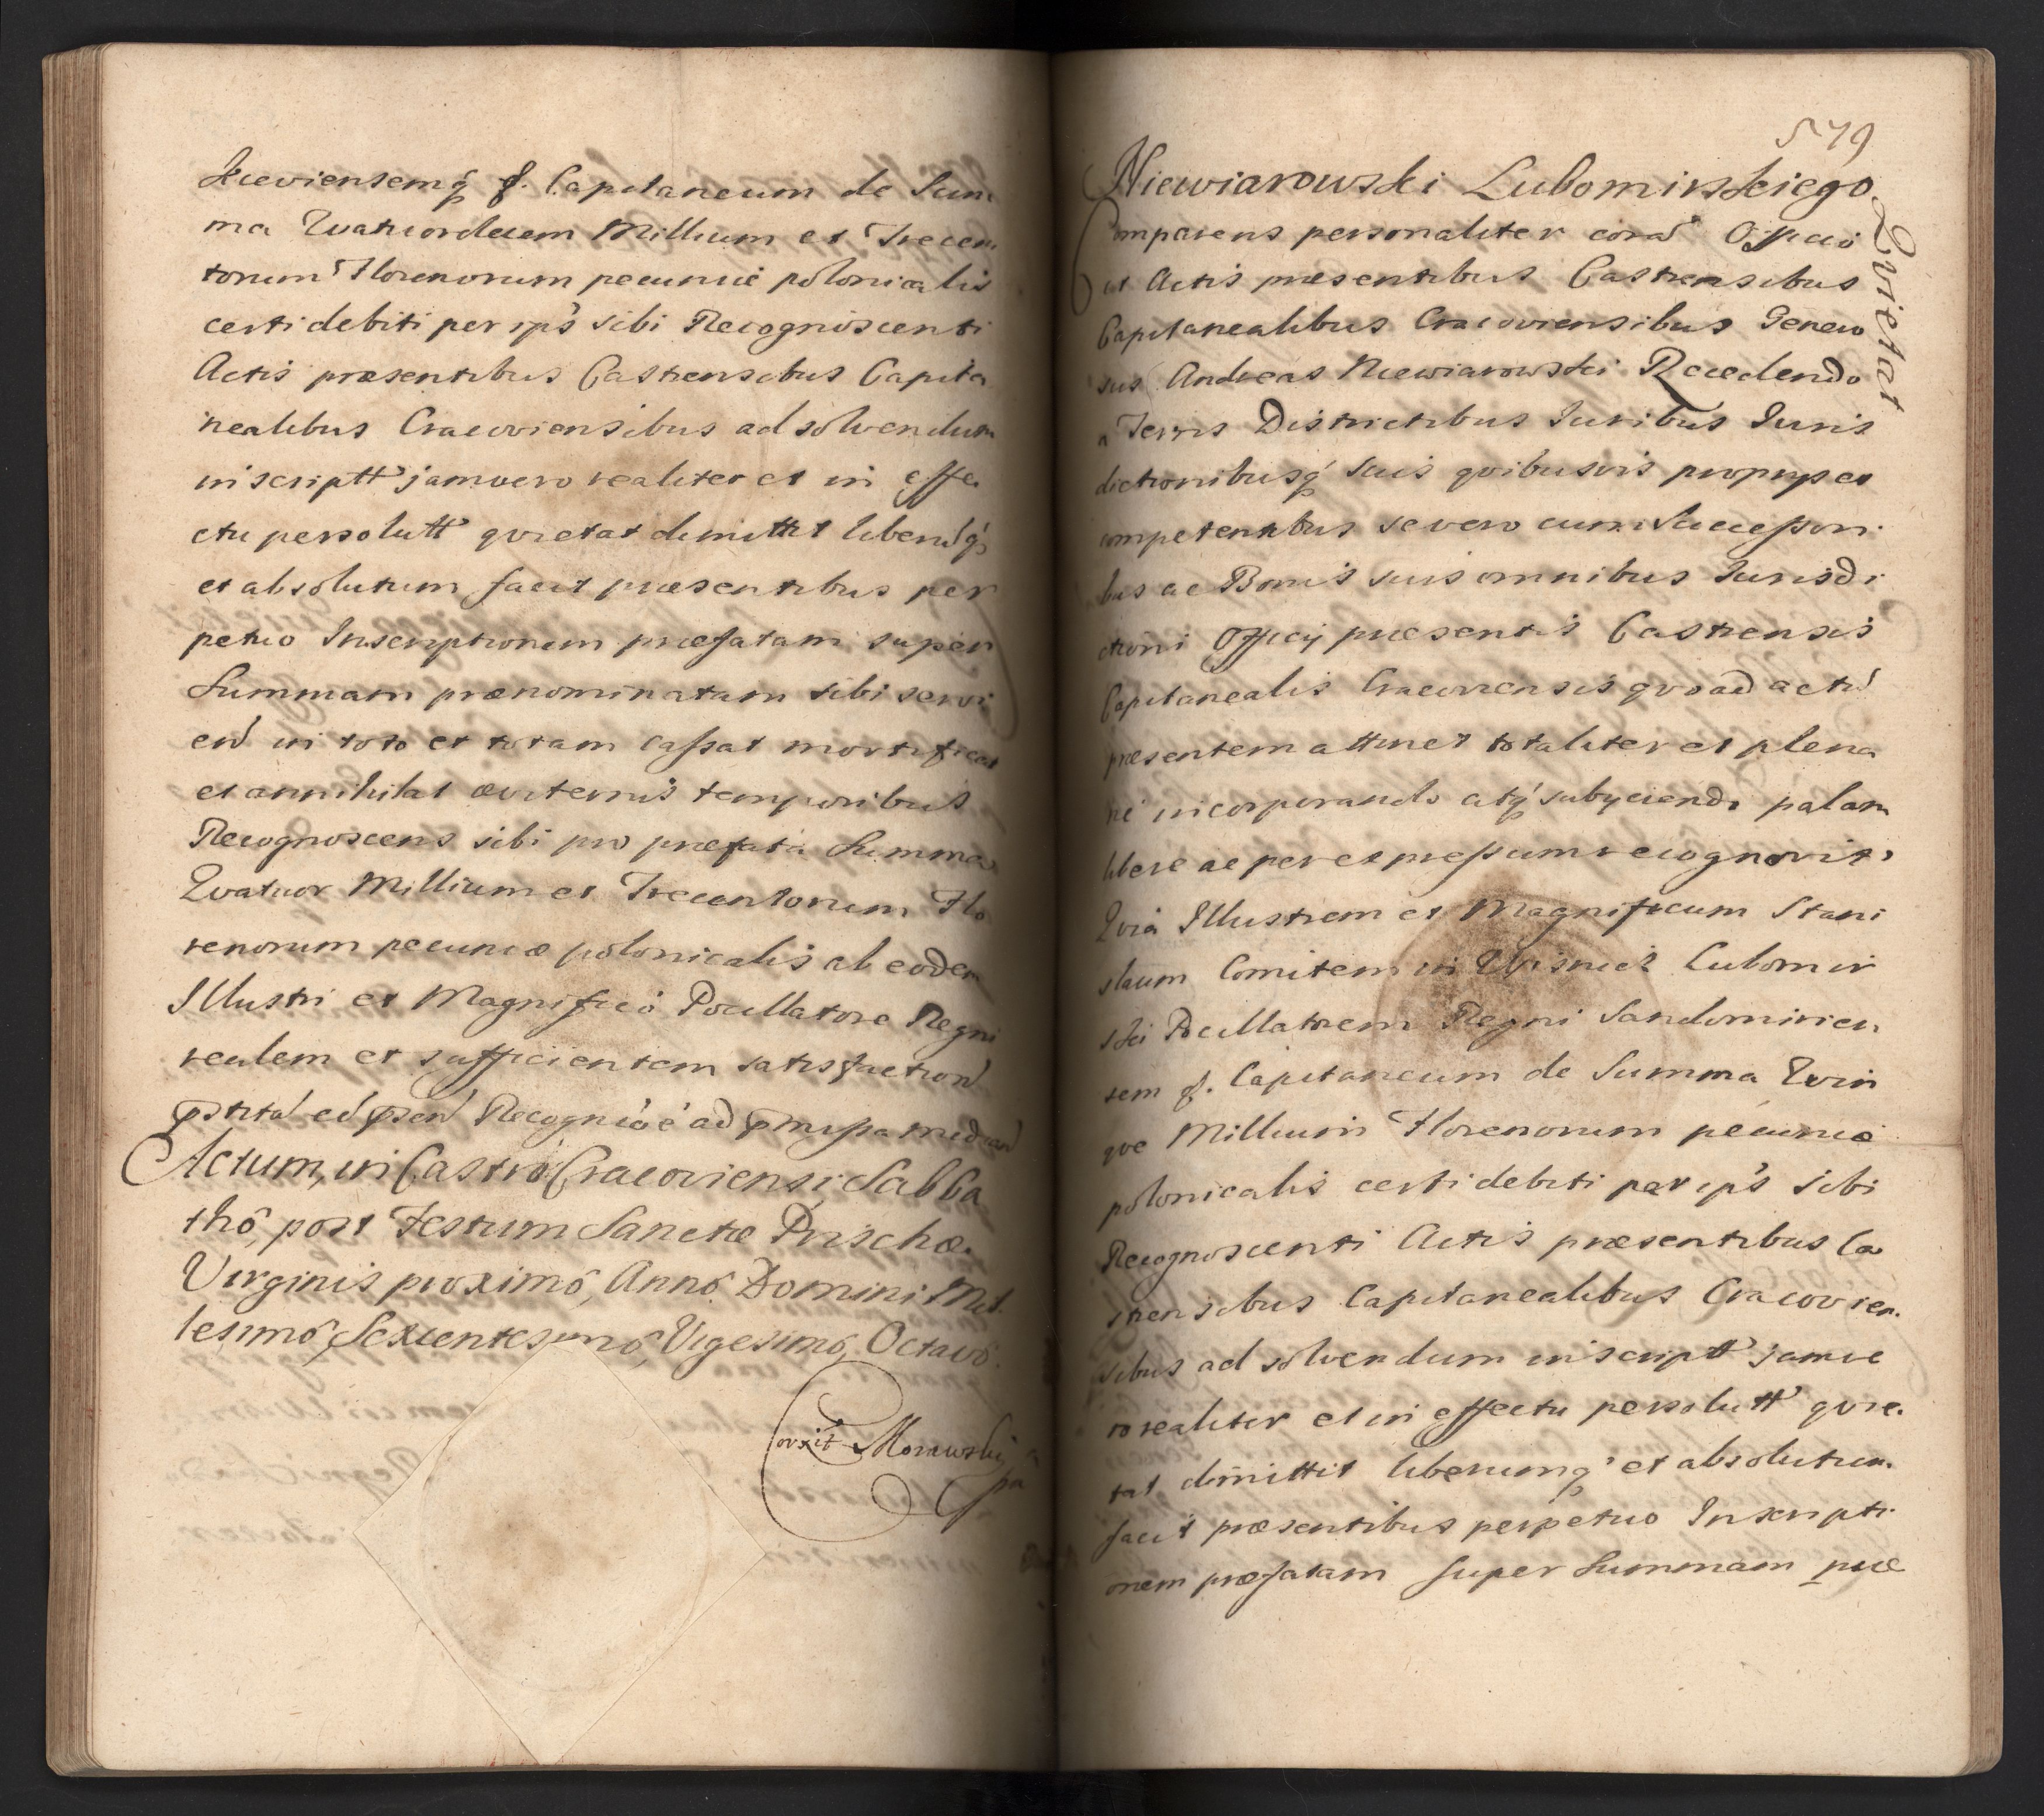 kieviensemq̃ g. Capitaneum de Sum
ma Quatuordecem Millium et Trecen
torum Florenorum pecuniæ polonicalis
certi debiti per ips̃ sibi Recognoscenti
Actis præsentibus Castrensibus Capita
nealibus Cracoviensibus ad solvendum
inscriptt' jamvero realiter et in effe
ctu persolutt' qvietat dimittit liberũq̃
et absolutum facit præsentibus per
petuo Inscriptionem præfatam super
Summam prænominatam sibi servi
eñ in toto et totam cassat mortificat
et annihilat æviternis temporibus
Recognoscens sibi pro præfata Summa
Qvatuor Millium et Trecentorum Flo
renorum pecuniæ polonicalis ab eodem
Illustri et Magnificó Pocillatore Regni
realem et sufficientem satisfactioñ
Actum, in Castró Cracoviensi, Sabba
thô, post Festum Sanctæ Prischæ.
Virginis proximô, Annô Domini Mil
lesimô, Sexcentesimô, Vigesimô, Octavô.
Morawski
579
Niewiarowski Lubomirskiego
Qvietat
Comparens personaliter corã Offició
et Actis præsentibus Castrensibus
Capitanealibus Cracoviensibus Genero
sus Andreas Niewiarowski Recedendo
a Terris Districtibus Juribus Juris
dictionibusq̃ suis qvibusvis proprys et
competentibus se vero cum Successori
bus ac Bonis suis omnibus Jurisdi
ctioni Officij præsentis Castrensis
Capitanealis Cracoviensis qvoad actũ
præsentem attinet totaliter et plena
rié incorporando atq̃ subyciendo palam
libere ac per expressum recognovit,
Qvia Illustrem et Magnificum Stani
slaum Comitem in Wisnicz Lubomir
ski Pocillatorem Regni Sandomirien
sem g. Capitaneum de Summa Qvin
qve Millium Florenorum pecuniæ
polonicalis certi debiti per ips̃ sibi
Recognoscenti Actis præsentibus Ca
strensibus Capitanealibus Cracovien.
sibus ad solvendum inscriptt' jamve
ro realiter et in effectu persolutt' qvie.
tat dimittit liberumq̃ et absolutum
facit præsentibus perpetuo Inscripti
onem præfatam super Summam præ